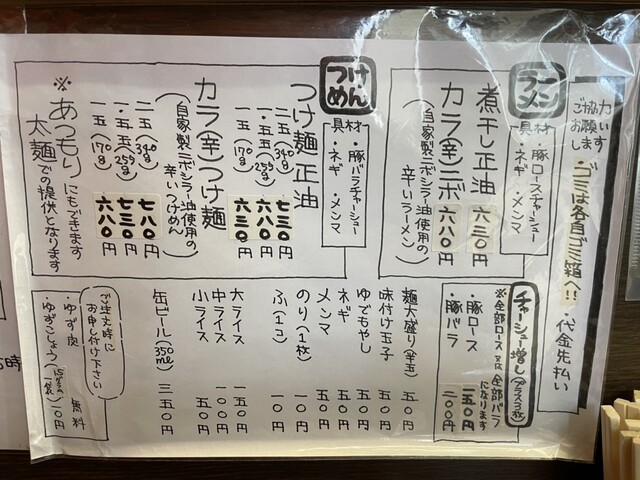 ご協力
お願い
します
・ゴミは各自ゴミ箱へ!!
・代金先払い
ラーメン
具材
・豚ロースチャーシュー
・ネギ・メンマ
煮干し正油
六三〇円
カラ(辛)ニボ
六八〇円
(自家製ニボシラー油使用の
辛いラーメン)
つけめん
具材
・豚バラチャーシュー
・ネギ・メンマ
つけ麺正油
二五(340g) 七三〇円
一・五五(255g) 六八〇円
一五(170g) 六三〇円
カラ(辛)つけ麺
(自家製ニボシラー油使用の
辛いつけめん)
二五(340g) 七八〇円
一・五五(255g) 七三〇円
一五(170g) 六八〇円
※あつもりにもできます
太麺での提供となります
チャーシュー増し(プラス3枚)
※全部ロース又は全部バラ
になります
・豚ロース 一五〇円
・豚バラ 二〇〇円
麺大盛り(半玉) 五〇円
味付け玉子 五〇円
ゆでもやし 五〇円
ネギ 五〇円
メンマ 五〇円
のり(1枚) 一〇円
ふ(1コ) 一〇円
大ライス 一五〇円
中ライス 一〇〇円
小ライス 五〇円
缶ビール(350ml) 三五〇円
ご注文時に
お申し付け下さい
・ゆず皮 無料
・ゆずこしょう 一〇円
5時